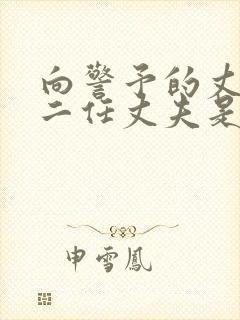 向警予的丈
二任丈夫是
申雪鳳